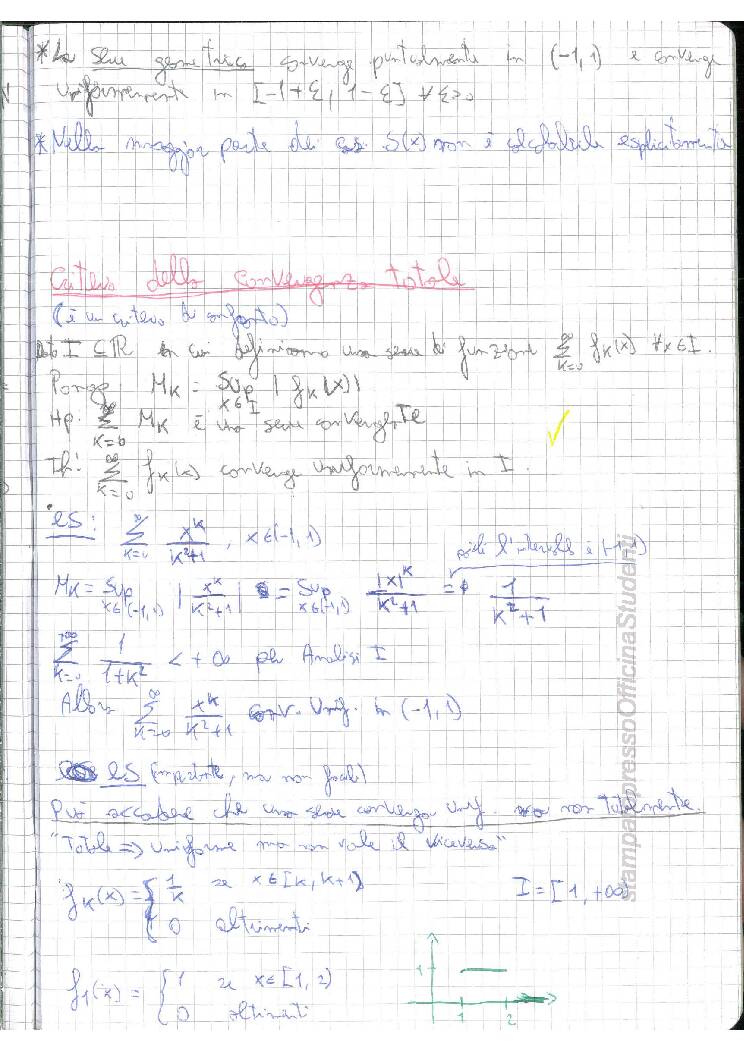 * La serie geometrica converge puntualmente in (-1,1) e converge
uniformemente in [-1+ε, 1-ε] ∀ε>0
* Nella maggior parte dei casi S(x) non è calcolabile esplicitamente
Criterio della convergenza totale
(è un criterio di confronto)
I ⊆ ℝ in cui definiamo una serie di funzioni ∑_{k=0}^{∞} f_k(x) ∀x∈I.
Pongo M_k = Sup_{x∈I} |f_k(x)|
Hp. ∑_{k=0}^{∞} M_k è una serie convergente
Th: ∑_{k=0}^{∞} f_k(x) converge uniformemente in I.
es: ∑_{k=0}^{∞} x^k/(k²+1), x∈(-1,1)
poiché l'intervallo è (-1,1)
M_k = Sup_{x∈(-1,1)} |x^k/(k²+1)| = Sup_{x∈(-1,1)} |x|^k/(k²+1) = 1/(k²+1)
∑_{k=0}^{+∞} 1/(1+k²) < +∞ per Analisi I
Allora ∑_{k=0}^{∞} x^k/(k²+1) conv. Unif. in (-1,1)
es (importante, ma non facile)
Può accadere che una serie converga unif. ma non totalmente.
"Totale ⇒ Uniforme ma non vale il viceversa"
f_k(x) = { 1/k se x∈[k, k+1) I = [1, +∞)
0 altrimenti
f_1(x) = { 1 se x∈[1, 2)
0 altrimenti
1
1 2
stampatopressoOfficinaStudenti